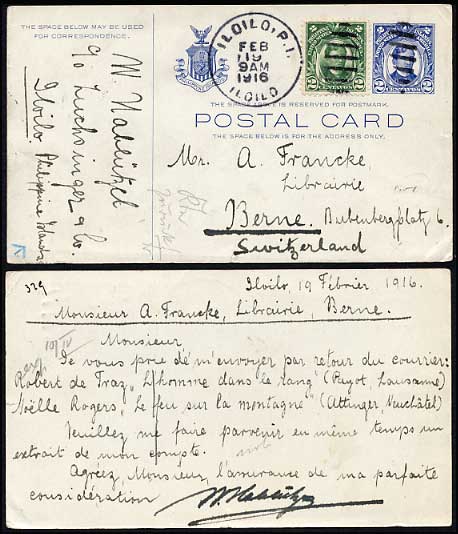 THE SPACE BELOW MAY BE USED
FOR CORRESPONDENCE.
W. Nabulitzel
c/o Luchsinger & Co.
Iloilo Philippine Islands
ILOILO, P.I.
FEB
19
9AM
1916
ILOILO
2 CENTAVOS 2
2 CENTAVOS 2
THE SPACE ABOVE IS RESERVED FOR POSTMARK.
POSTAL CARD
THE SPACE BELOW IS FOR THE ADDRESS ONLY.
Mr. A. Francke,
Librairie
Berne. Bubenbergplatz 6.
Switzerland
329
Iloilo, 19 Février 1916.
Monsieur A. Francke, Librairie, Berne.
Monsieur,
Je vous prie de m'envoyer par retour du courrier:
Robert de Traz, "L'homme dans le rang" (Payot, Lausanne)
Noëlle Rogers, "Le feu sur la montagne" (Attinger, Neuchâtel)
Veuillez me faire parvenir en même temps un
extrait de mon compte.
Agréez, Monsieur, l'assurance de ma parfaite
considération